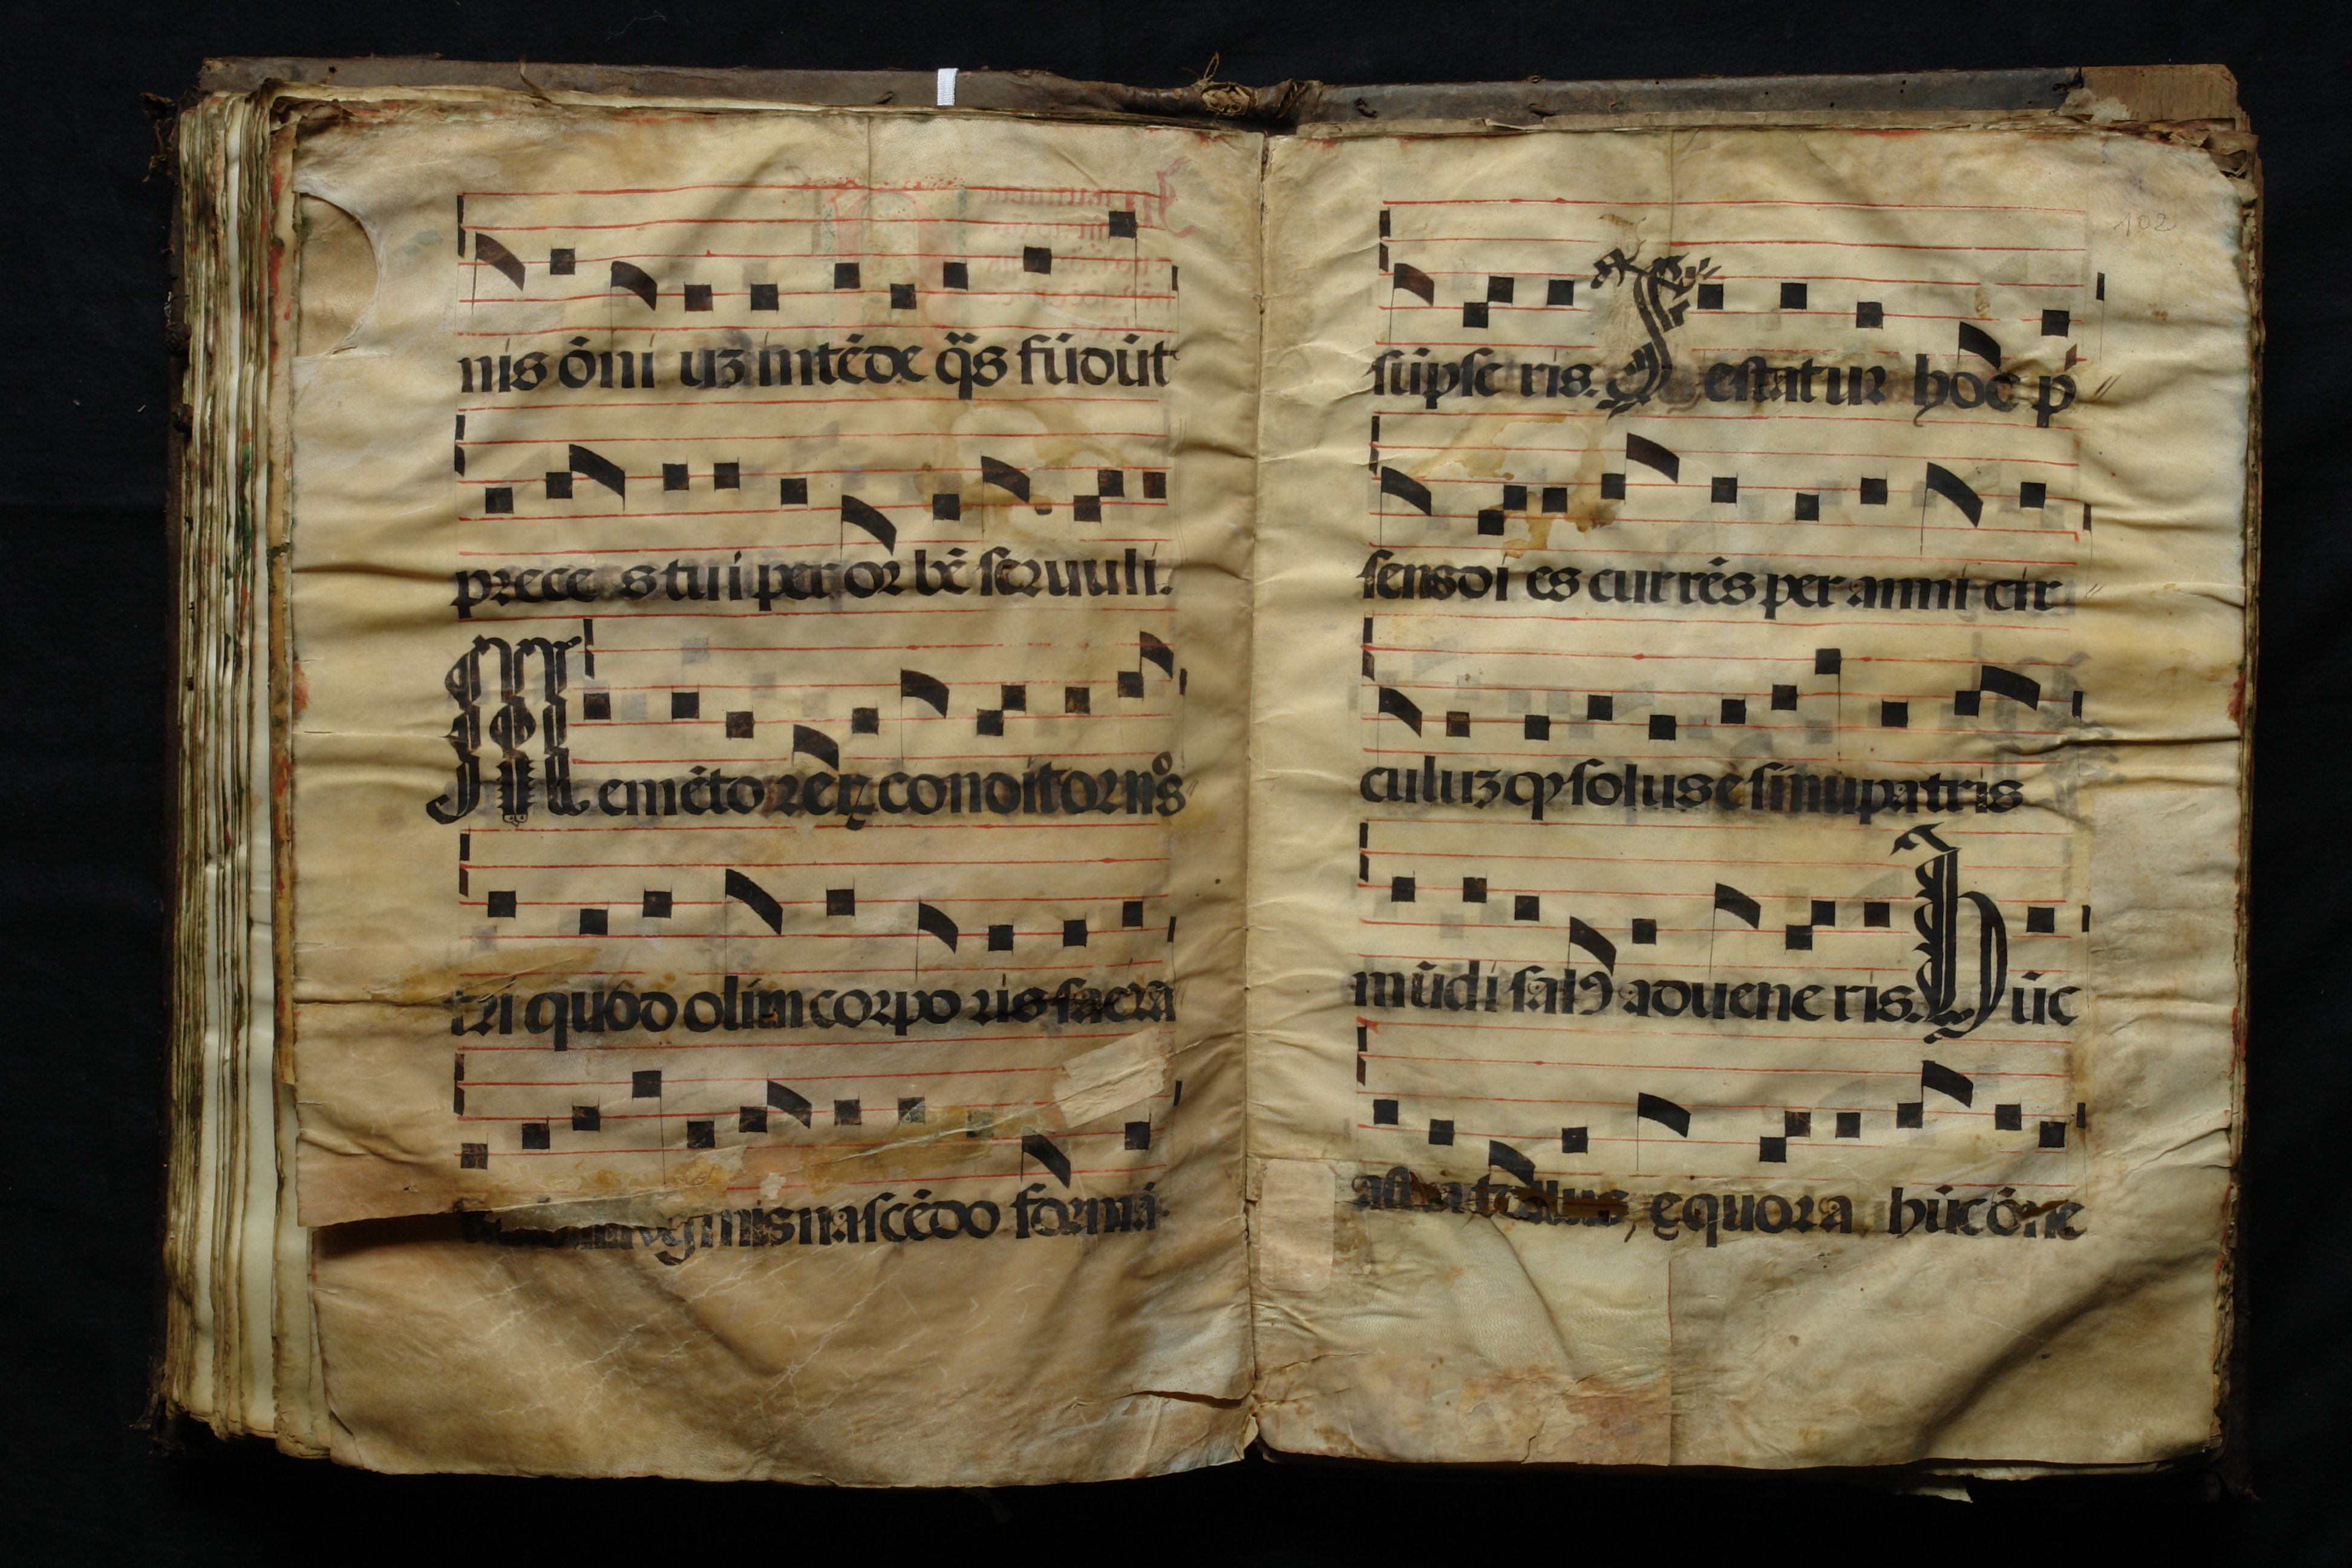 nis ōni uꝫ intēde q̄s fūdūt
prece s tui per or bē ſeruuli.
Memēto rex conditor nōs
tri quod olim corpo ris ſacra
virginis naſcēdo formā
ſūpſe ris. Teſtatur hoc p̄
ſens di es currēs per anni cir
culuꝫ qͥ ſolus e ſinu patris
mūdi ſalꝰ adueneris. Hūc
aſtra tellus, equora hūc ōne
102